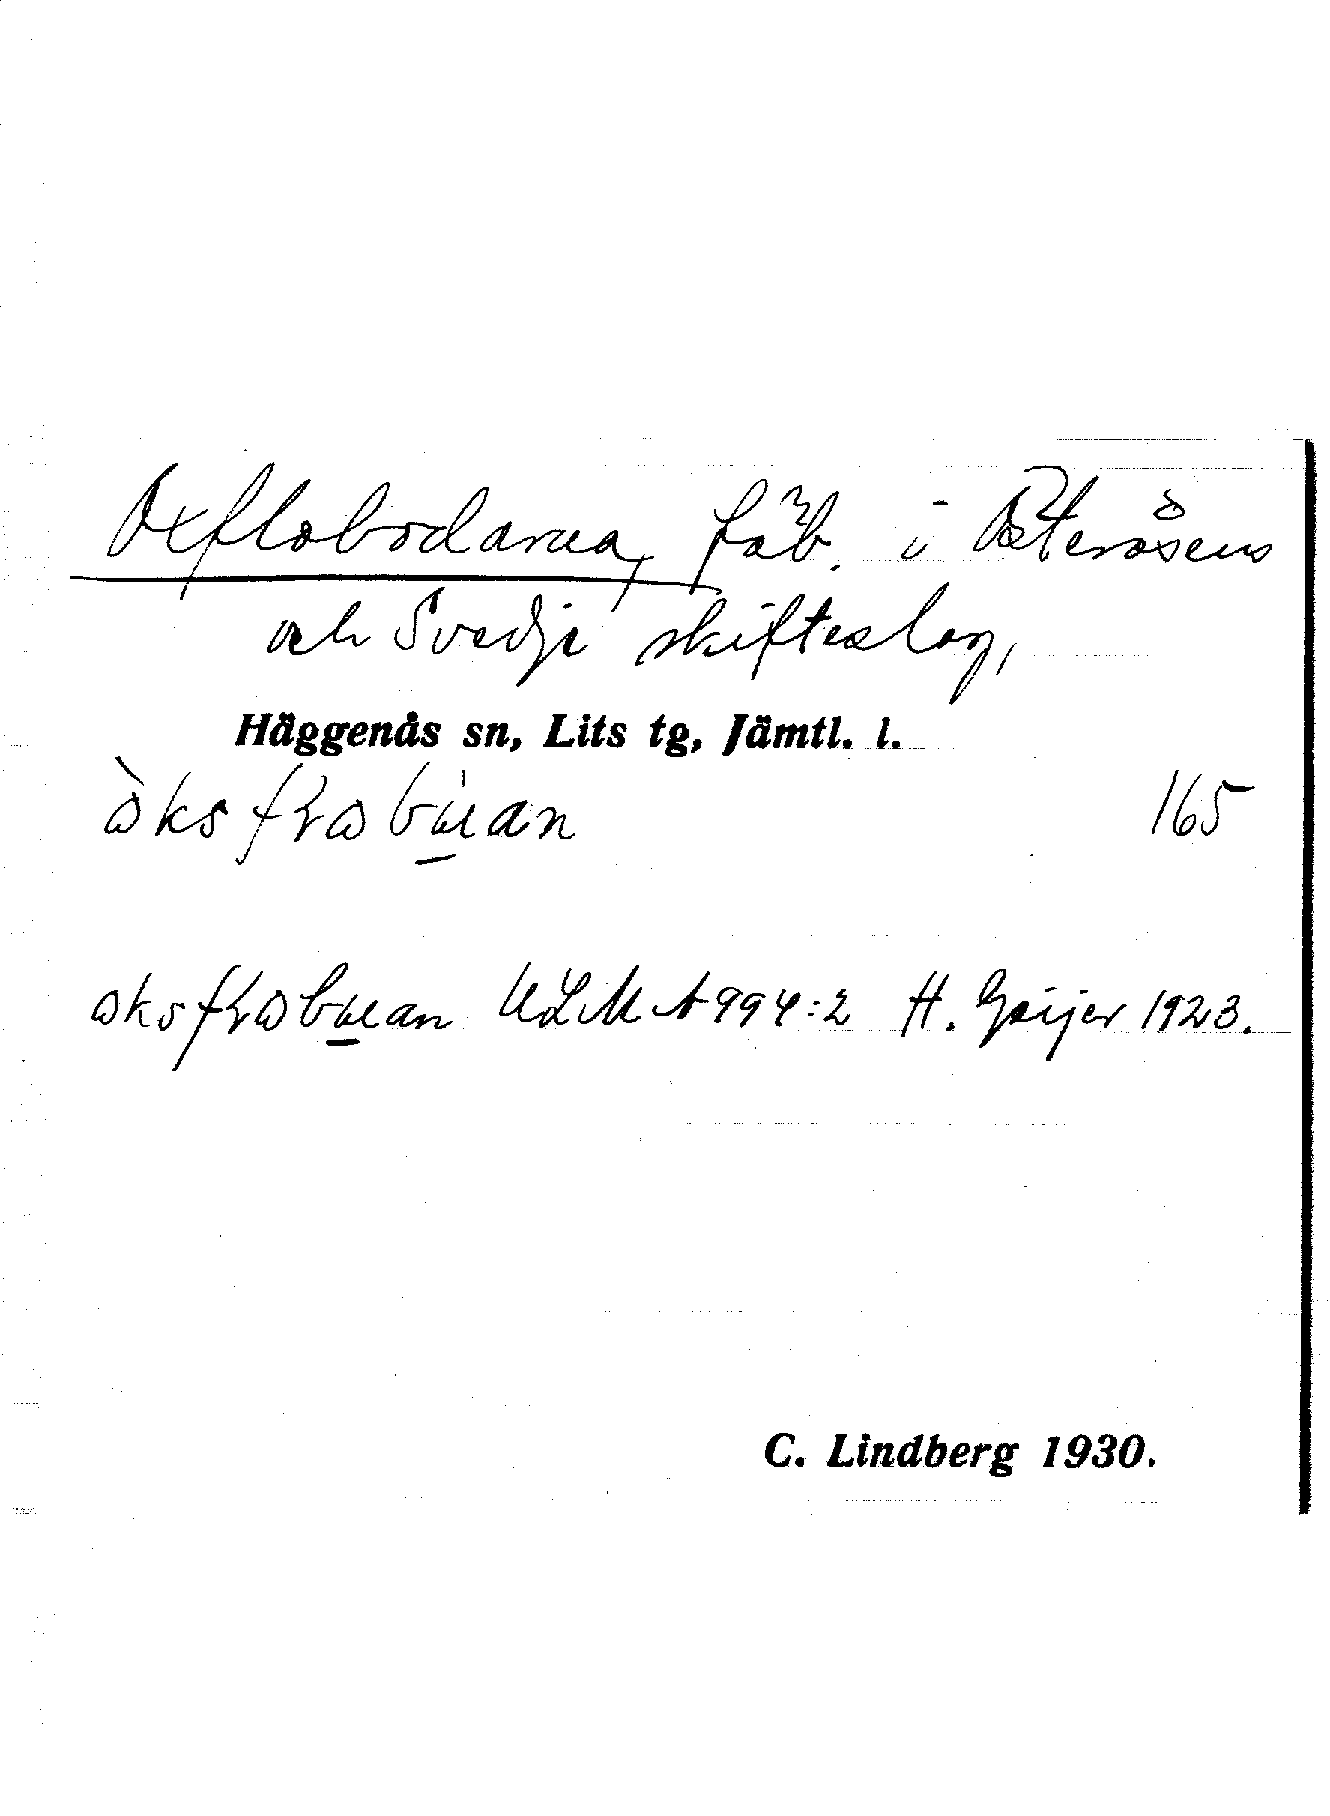 Oxflobodarna, fäb. i Österåsens
och Svedje skifteslag,
Häggenås sn, Lits tg, Jämtl. l.
165
ULMA 994:2 H. Geijer 1923.
C. Lindberg 1930.